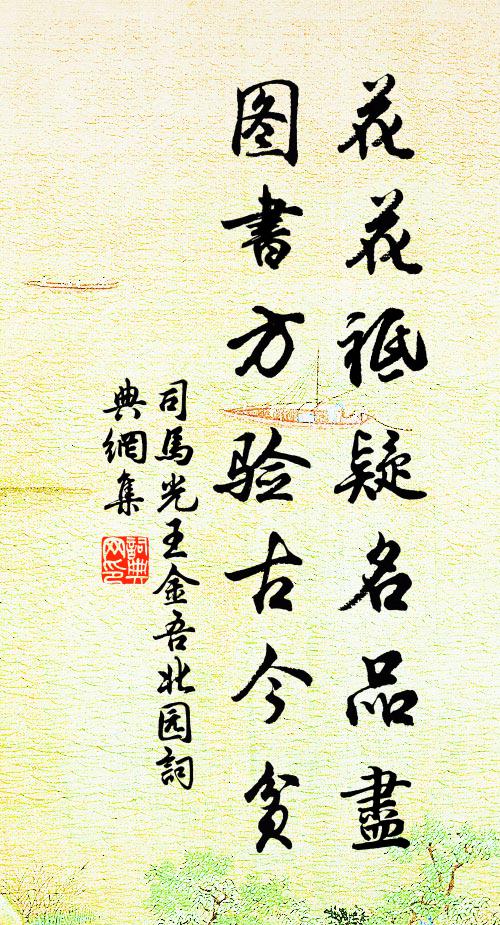 花花祗疑名品盡
图書方验古今貧
司馬光王金吾北园詞
典網集
詞典
网印